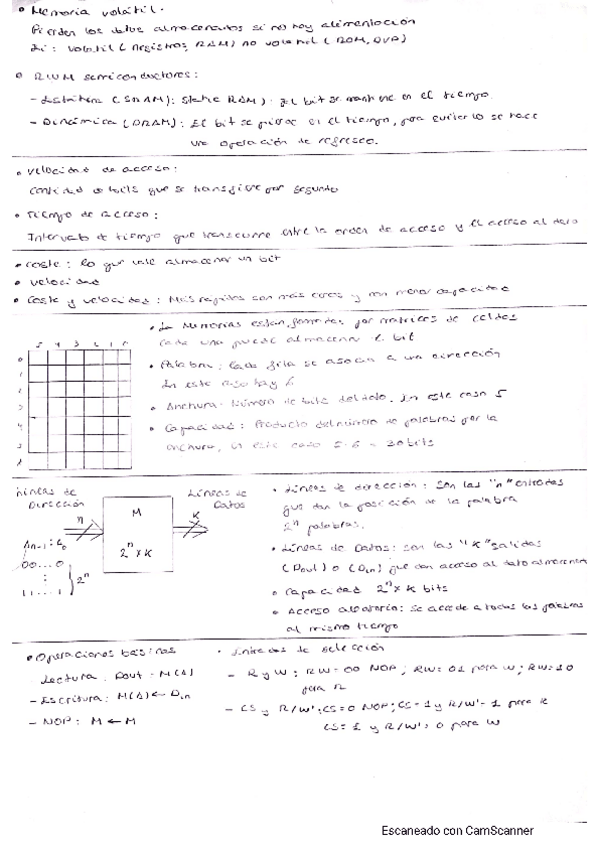 • Memoria volátil.
Pierden los datos almacenados si no hay alimentación
Ej: volátil (registros, RAM) no volátil (ROM, DVD)
• RWM semiconductores:
- Estática (SRAM): Static RAM). El bit se mantiene en el tiempo.
- Dinámica (DRAM): El bit se pierde en el tiempo, para evitarlo se hace
una operación de refresco.
• Velocidad de acceso:
Cantidad de bits que se transfiere por segundo
• Tiempo de acceso:
Intervalo de tiempo que transcurre entre la orden de acceso y el acceso al dato
• coste: lo que vale almacenar un bit
• velocidad
• Coste y velocidad: Más rápidas son más caras y con menor capacidad
• Las Memorias están formadas por matrices de celdas
cada una puede almacenar 1 bit
5 4 3 2 1 0
0
1
2
3
4
5
• Palabra: Cada fila se asocia a una dirección
En este caso hay 6
• Anchura: Número de bits del dato. En este caso 5
• Capacidad: Producto del número de palabras por la
anchura, en este caso 5·6 = 30 bits
Líneas de
Dirección
n
M
2^n x K
Líneas de
Datos
K
00...0
11...1
2^n
• Líneas de dirección: son las "n" entradas
que dan la posición de la palabra
2^n palabras.
• Líneas de Datos: son las "K" salidas
(Dout) o (Din) que dan acceso al dato almacenado
• Capacidad 2^n x K bits
• Acceso aleatorio: Se accede a todas las palabras
al mismo tiempo
• Operaciones básicas
Lectura: Dout = M(A)
- Escritura: M(A) ← Din
- NOP: M ← M
• Entradas de selección
- R y W: RW=00 NOP; RW=01 para W; RW=10
para R
- CS y R/W': CS=0 NOP; CS=1 y R/W'=1 para R
CS=1 y R/W'=0 para W
Escaneado con CamScanner